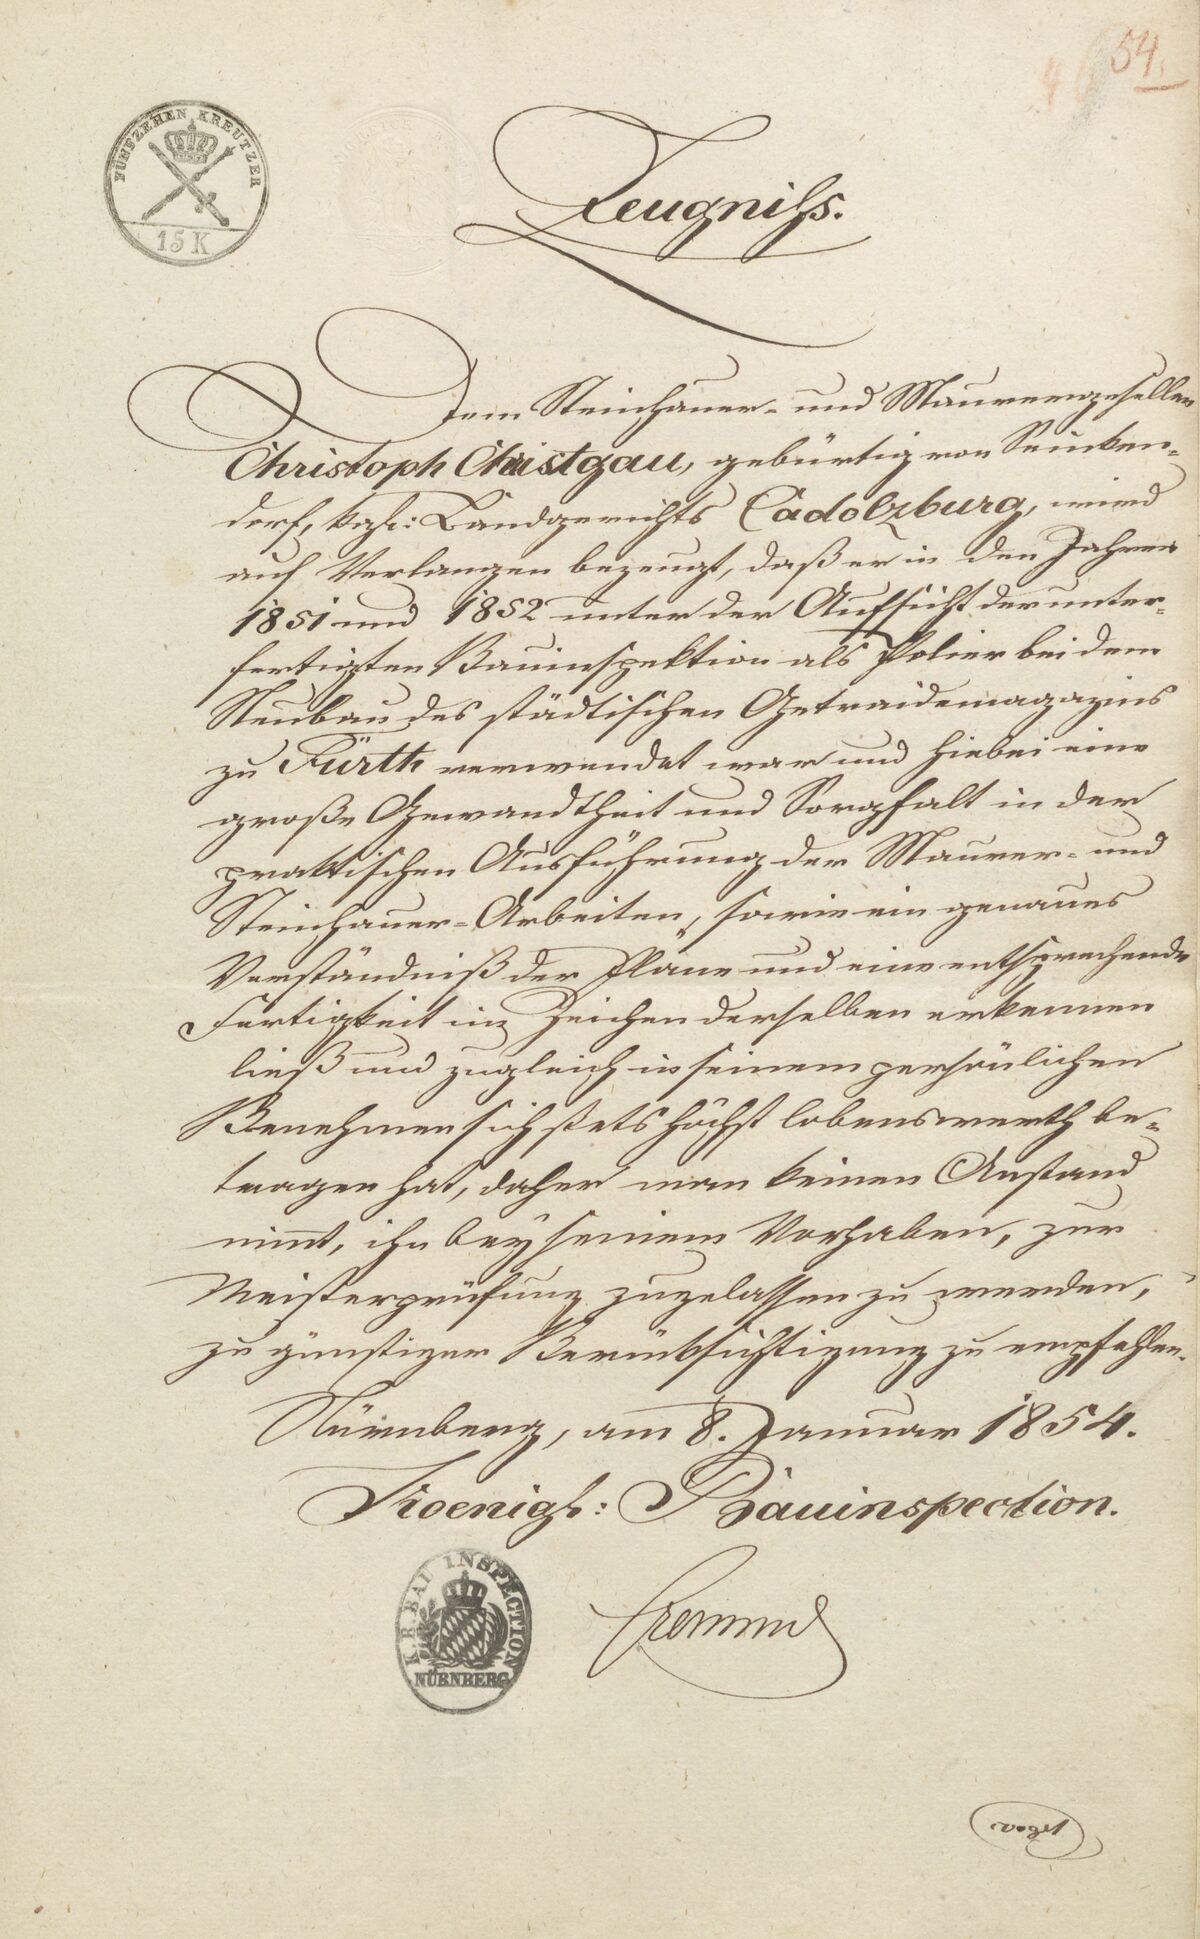 54.
FÜNFZEHEN KREUTZER
15 K
Zeugniss.
Dem Steinhauer- und Maurergesellen
Christoph Christgau, gebürtig von Seucken-
dorf, kgl: Landgerichts Cadolzburg, wird
auf Verlangen bezeugt, daß er in den Jahren
1851 und 1852 unter der Aufsicht der unter-
fertigten Bauinspektion als Polier bei dem
Neubau des städtischen Getraidemagazins
zu Fürth verwendet war und hiebei eine
große Gewandtheit und Sorgfalt in der
praktischen Ausführung der Maurer- und
Steinhauer-Arbeiten, sowie ein genaues
Verständniß der Pläne und eine entsprechende
Fertigkeit im Zeichen derselben erkennen
ließ und zugleich in seinem persönlichen
Benehmen sich stets höchst lobenswerth be-
tragen hat, daher man keinen Anstand
nimt, ihn bey seinem Vorhaben, zur
Meisterprüfung zugelassen zu werden,
zu günstiger Berücksichtigung zu empfehlen.
Nürnberg, am 8. Januar 1854.
Koenigl: Bauinspection.
K. B. BAU INSPECTION
NÜRNBERG